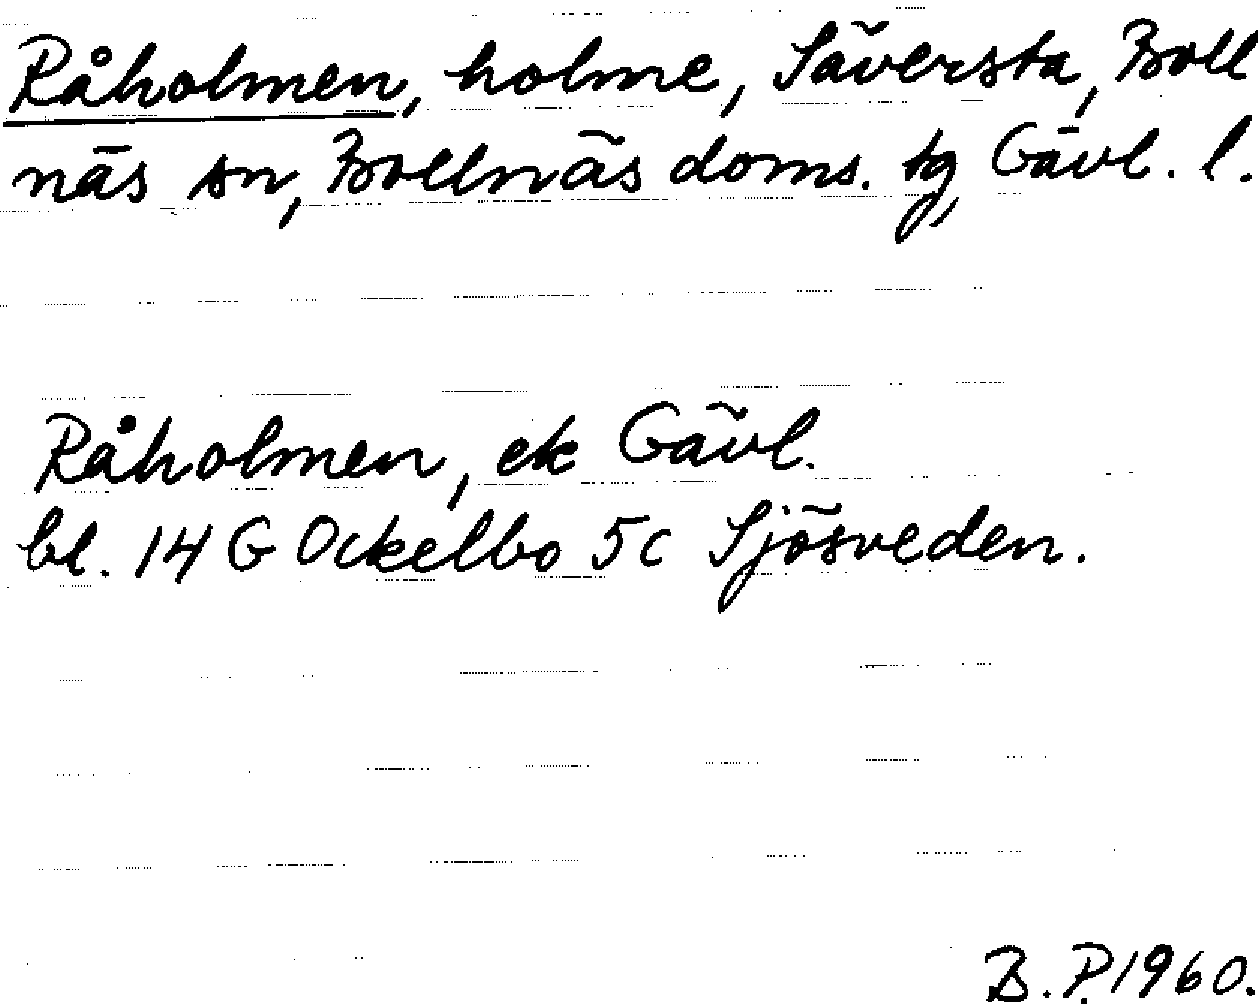 Råholmen, holme, Säversta, Boll
näs sn, Bollnäs doms. tg, Gävl. l.
Råholmen, ek Gävl.
bl. 14 G Ockelbo 5c Sjösveden.
B. P. 1960.